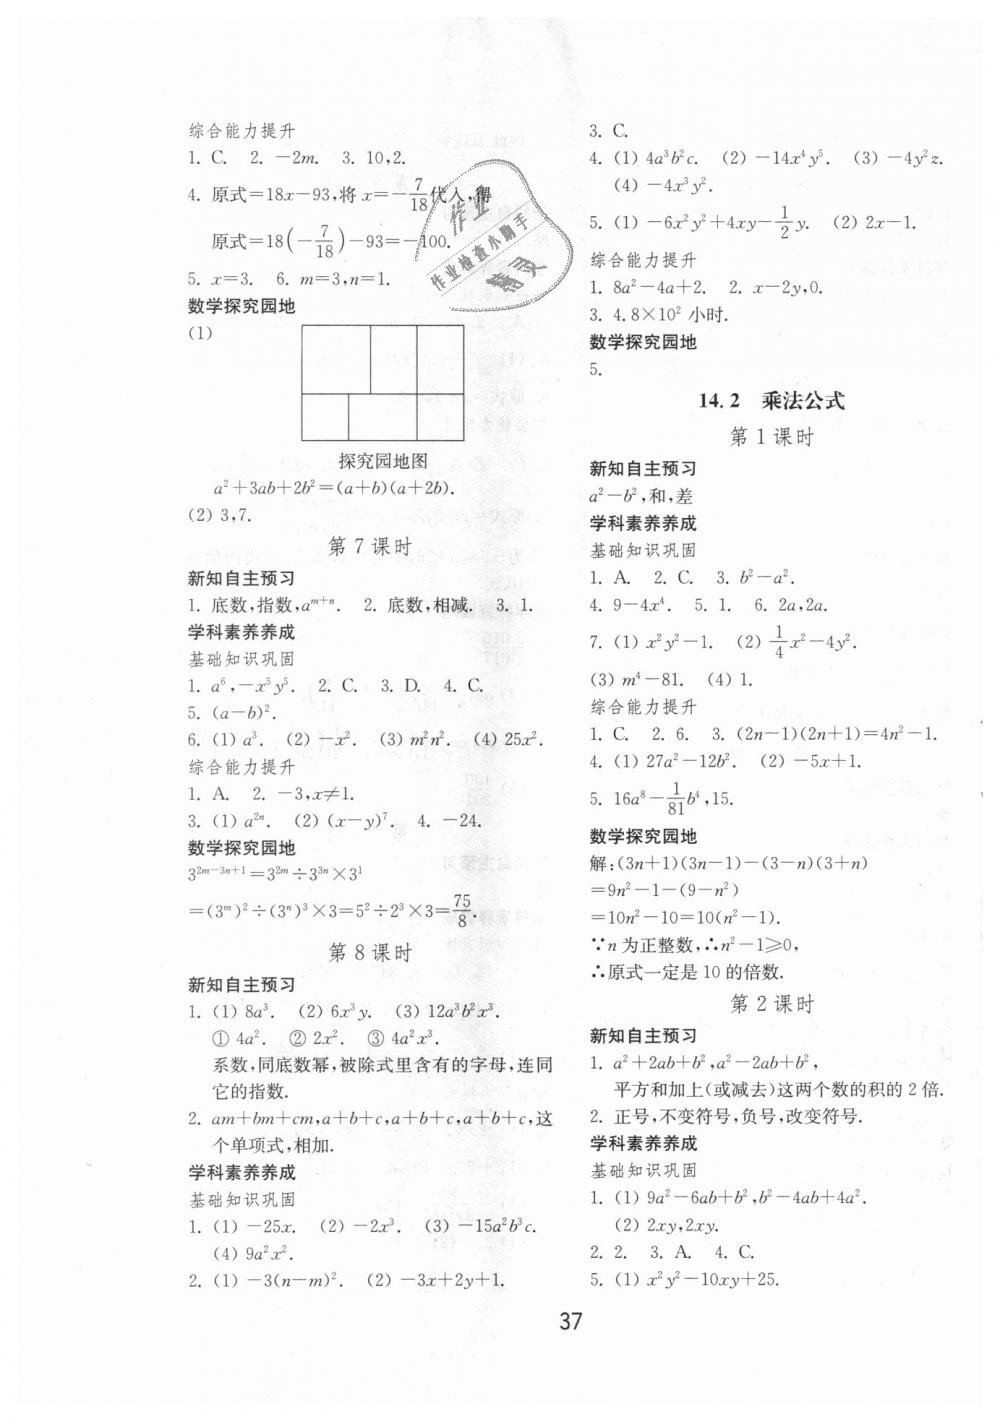 综合能力提升
1. C.  2. －2m.  3. 10,2.
4. 原式=18x－93,将 x=－7/18代入,得
原式=18(－7/18)－93=－100.
5. x=3.  6. m=3,n=1.
数学探究园地
(1)
探究园地图
a²+3ab+2b²=(a+b)(a+2b).
(2) 3,7.
第 7 课时
新知自主预习
1. 底数,指数,aᵐ⁺ⁿ.  2. 底数,相减.  3. 1.
学科素养养成
基础知识巩固
1. a⁶,－x⁵y⁵.  2. C.  3. D.  4. C.
5. (a－b)².
6. (1) a³.  (2) －x².  (3) m²n².  (4) 25x².
综合能力提升
1. A.  2. －3,x≠1.
3. (1) a²ⁿ.  (2) (x－y)⁷.  4. －24.
数学探究园地
3²ᵐ⁻³ⁿ⁺¹=3²ᵐ÷3³ⁿ×3¹
=(3ᵐ)²÷(3ⁿ)³×3=5²÷2³×3=75/8.
第 8 课时
新知自主预习
1. (1) 8a³.  (2) 6x³y.  (3) 12a³b²x³.
① 4a².  ② 2x².  ③ 4a²x³.
系数,同底数幂,被除式里含有的字母,连同
它的指数.
2. am+bm+cm,a+b+c,a+b+c,a+b+c,这
个单项式,相加.
学科素养养成
基础知识巩固
1. (1) －25x.  (2) －2x³.  (3) －15a²b³c.
(4) 9a²x².
2. (1) －3(n－m)².  (2) －3x+2y+1.
3. C.
4. (1) 4a³b²c.  (2) －14x⁴y⁵.  (3) －4y²z.
(4) －4x³y².
5. (1) －6x²y²+4xy－1/2y.  (2) 2x－1.
综合能力提升
1. 8a²－4a+2.  2. x－2y,0.
3. 4.8×10² 小时.
数学探究园地
5.
14.2 乘法公式
第 1 课时
新知自主预习
a²－b²,和,差
学科素养养成
基础知识巩固
1. A.  2. C.  3. b²－a².
4. 9－4x⁴.  5. 1.  6. 2a,2a.
7. (1) x²y²－1.  (2) 1/4x²－4y².
(3) m⁴－81.  (4) 1.
综合能力提升
1. C.  2. 6.  3. (2n－1)(2n+1)=4n²－1.
4. (1) 27a²－12b².  (2) －5x+1.
5. 16a⁸－1/81b⁴,15.
数学探究园地
解:(3n+1)(3n－1)－(3－n)(3+n)
=9n²－1－(9－n²)
=10n²－10=10(n²－1).
∵n 为正整数,∴n²－1⩾0,
∴原式一定是 10 的倍数.
第 2 课时
新知自主预习
1. a²+2ab+b²,a²－2ab+b²,
平方和加上(或减去)这两个数的积的 2 倍.
2. 正号,不变符号,负号,改变符号.
学科素养养成
基础知识巩固
1. (1) 9a²－6ab+b²,b²－4ab+4a².
(2) 2xy,2xy.
2. 2.  3. A.  4. C.
5. (1) x²y²－10xy+25.
37
作业
作业检查小助手
精灵